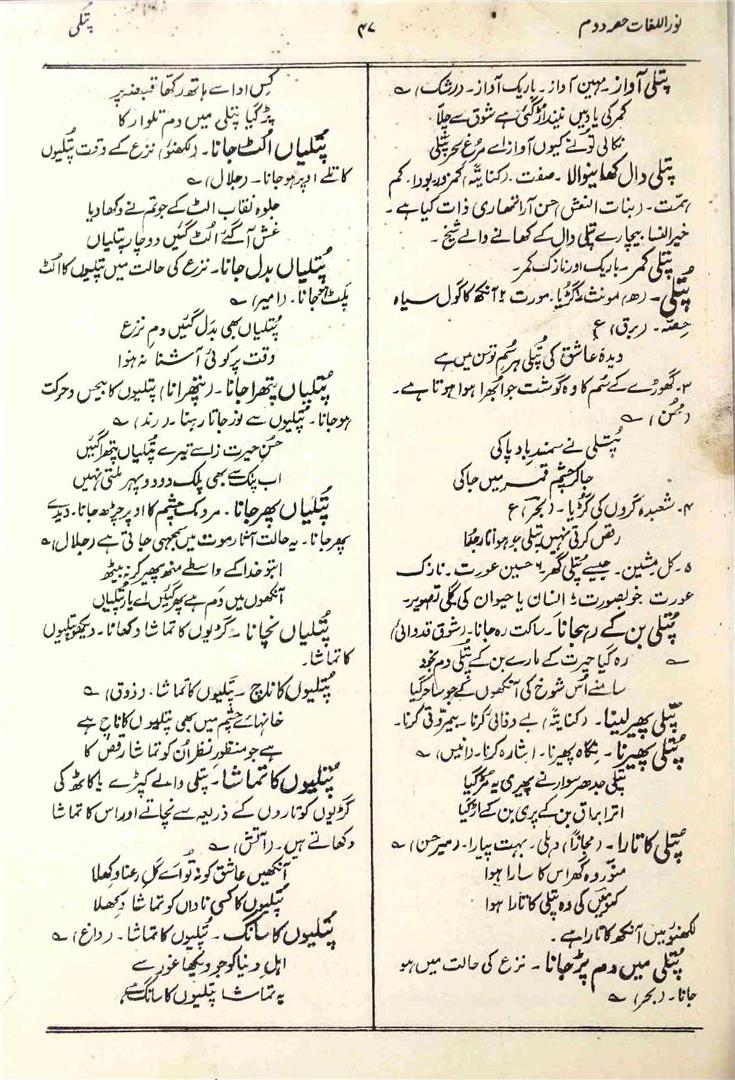 نور اللغات حصہ دوم
۴۷
پتلی
پتلی آواز۔ مہین آواز۔ باریک آواز۔ (رشک) ؎
کمر کی یاد میں نیند اڑ گئی ہے شوق سے چلّا
نکالی تونے کیوں آواز اے مرغِ سحر پتلی
پتلی دال کھا نیوالا۔ صفت۔ (کنایتہً) کمزور بودا۔ کم
ہمّت۔ (بنات النعش) حسن آرا تمھاری ذات کیا ہے۔
خیر النسا بیچارے پتلی دال کے کھانے والے شیخ۔
پتلی کمر۔ باریک اور نازک کمر۔
پُتلی۔ (ھ) مونث ۱۔ گڑیا۔ مورت ۲۔ آنکھ کا گول سیاہ
حصّہ۔ (برق) ع
دیدۂ عاشق کی پُتلی ہر سُم توسن میں ہے
۳۔ گھوڑے کے سُم کا وہ گوشت جو ابھرا ہوا ہوتا ہے۔
(محسن) ؎
پُتلی نے سمند باد پا کی
جا کر چشمِ قمر میں جا کی
۴۔ شعبدہ گروں کی گڑیا۔ (بحر) ع
رقص کرتی نہیں پتلی جو ہوا نا رجعا
۵۔ کل۔ مشین۔ جیسے پُتلی گھر ۶۔ حسین عورت۔ نازک
عورت خوبصورت ۷۔ انسان یا حیوان کی گلی تصویر۔
پُتلی بن کے رہجانا۔ ساکت رہ جانا۔ (شوق قدوائی)
؎ رہ گیا حیرت کے مارے بن کے پُتلی دم بخود
سامنے اُس شوخ کی آنکھوں کے جو ساحر گیا
پتلی پھیر لینا۔ (کنایتہً) بے وفائی کرنا۔ بیمروتی کرنا۔
پُتلی پھیرنا۔ نگاہ پھیرنا۔ اشارہ کرنا۔ (انیس) ؎
پتلی جدھر سوار نے پھیری یہ مڑ گیا
اترا براق بن کے پری بن کے اڑ گیا
پُتلی کا تارا۔ (مجازاً) دہلی۔ بہت پیارا۔ (میر حسن) ؎
منوّر وہ گھر اس کا سارا ہوا
کنویں کی وہ پتلی کا تارا ہوا
لکھنؤ میں آنکھ کا تارا ہے۔
پُتلی میں دم پڑ جانا۔ نزع کی حالت میں ہو
جانا۔ (بحر) ؎
کِس ادا سے ہاتھ رکھّا قبضہ پر
پڑ گیا پتلی میں دم تلوار کا
پُتلیاں الٹ جانا۔ (لکھنؤ) نزع کے وقت پتلیوں
کا تلے اوپر ہو جانا۔ (جلال) ؎
جلوہ نقاب الٹ کے جو تم نے دکھا دیا
غش آ گئے الٹ گئیں دو چار پتلیاں
پُتلیاں بدل جانا۔ نزع کی حالت میں پتلیوں کا الٹ
پلٹ ہو جانا۔ (امیر) ؎
پُتلیاں بھی بدل گئیں دمِ نزع
وقت پر کوئی آشنا نہ ہوا
پُتلیاں پتھرا جانا۔ (پتھرانا) پتلیوں کا بیحس و حرکت
ہو جانا۔ پتلیوں سے نور جاتا رہنا۔ (رند) ؎
حسنِ حیرت زا سے تیرے پُتلیاں پتھرا گئیں
اب پنک سے بھی پلک دو دو پہر ملتی نہیں
پُتلیاں پھر جانا۔ مردمک چشم کا اوپر چڑھ جانا۔ دیدے
پھر جانا۔ یہ حالت آثارِ موت میں سمجھی جاتی ہے (جلال) ؎
ابتو خدا کے واسطے منھ پھیر کر نہ بیٹھ
آنکھوں میں دم ہے پھر گئیں اے یار پتلیاں
پُتلیاں نچانا۔ گڑیوں کا تماشا دکھانا۔ دیکھو پُتلیوں
کا تماشا۔
پُتلیوں کا ناچ۔ پتلیوں کا تماشا۔ (ذوق) ؎
خانہائے چشم میں بھی پُتلیوں کا ناچ ہے
ہے جو منظورِ نظر اُن کو تماشا رقص کا
پُتلیوں کا تماشا۔ پتلی والے کپڑے یا کاٹھ کی
گڑیوں کو تاروں کے ذریعہ سے نچاتے اور اس کا تماشا
دکھاتے ہیں۔ (آتش) ؎
آنکھیں عاشق کو نہ تو اے گلِ رعنا دکھلا
پُتلیوں کا کسی ناداں کو تماشا دکھلا
پُتلیوں کا سانگ۔ پُتلیوں کا تماشا۔ (داغ) ؎
اہلِ دنیا کو جو دیکھا غور سے
یہ تماشا پتلیوں کا سانگ ہے